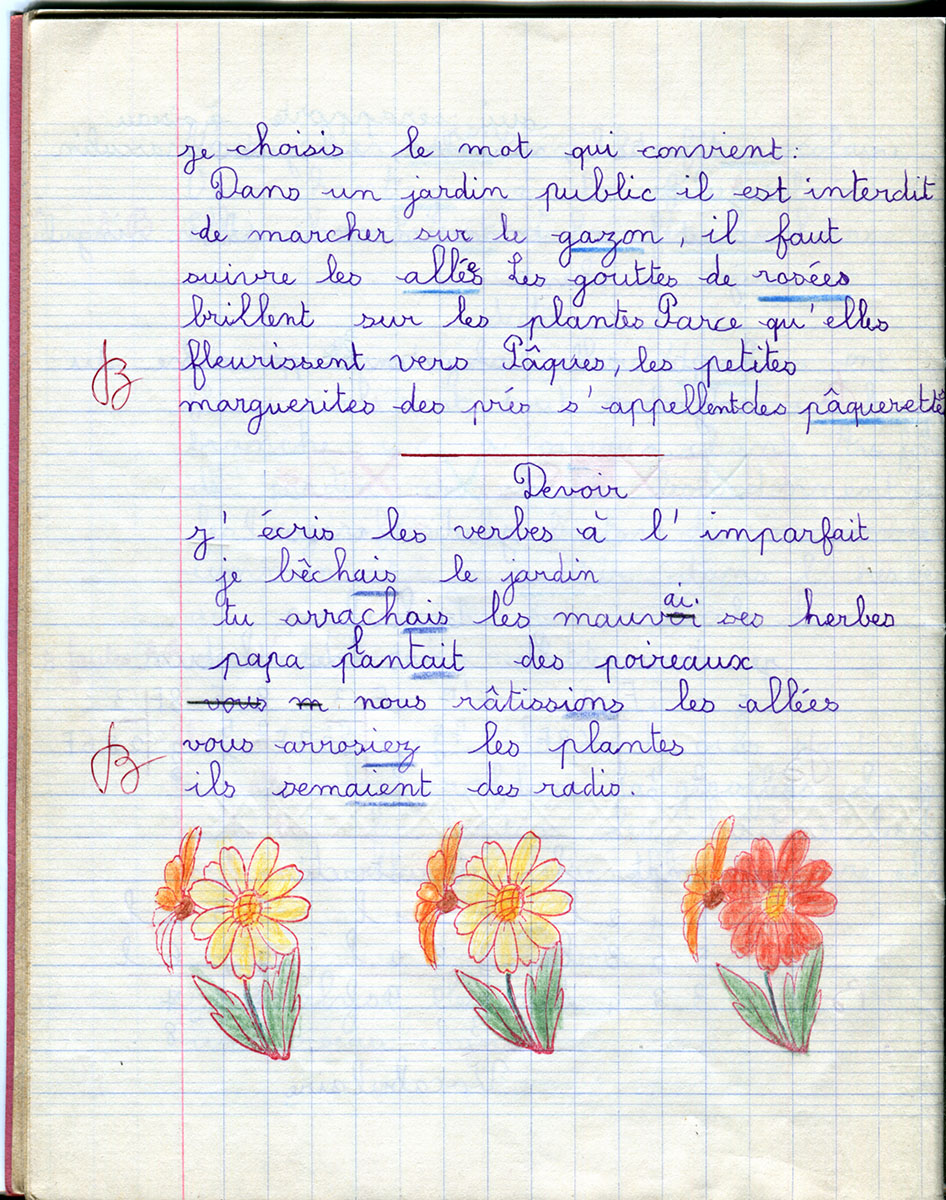 je choisis le mot qui convient :
Dans un jardin public il est interdit
de marcher sur le gazon, il faut
suivre les allées Les gouttes de rosées
brillent sur les plantes Parce qu'elles
fleurissent vers Pâques, les petites
B marguerites des prés s'appellent des pâquerettes
Devoir
j'écris les verbes à l'imparfait
je bêchais le jardin
tu arrachais les mauvaises herbes
papa plantait des poireaux
vous m nous râtissions les allées
B vous arrosiez les plantes
ils semaient des radis.